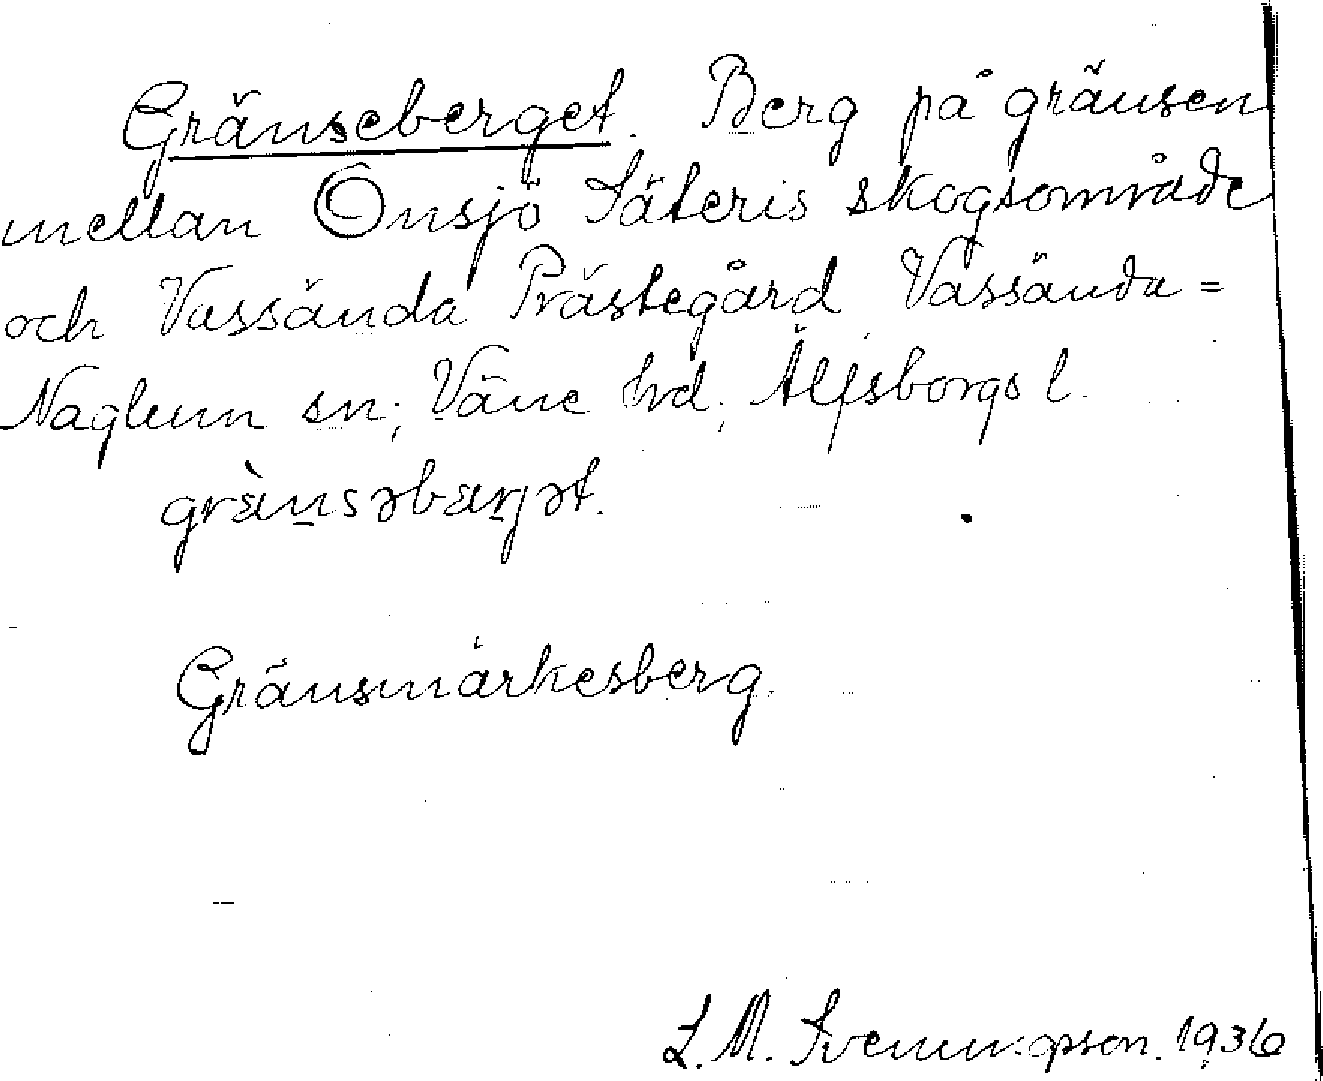 Gränseberget. Berg på gränsen
mellan Önsjö Säteris skogsområde
och Vassända Prästegård Vassända=
Naglum sn; Väne hd; Älfsborgs l.
grὰnsəbærjət.
Gränsmärkesberg.
L. M. Svenungsson. 1936